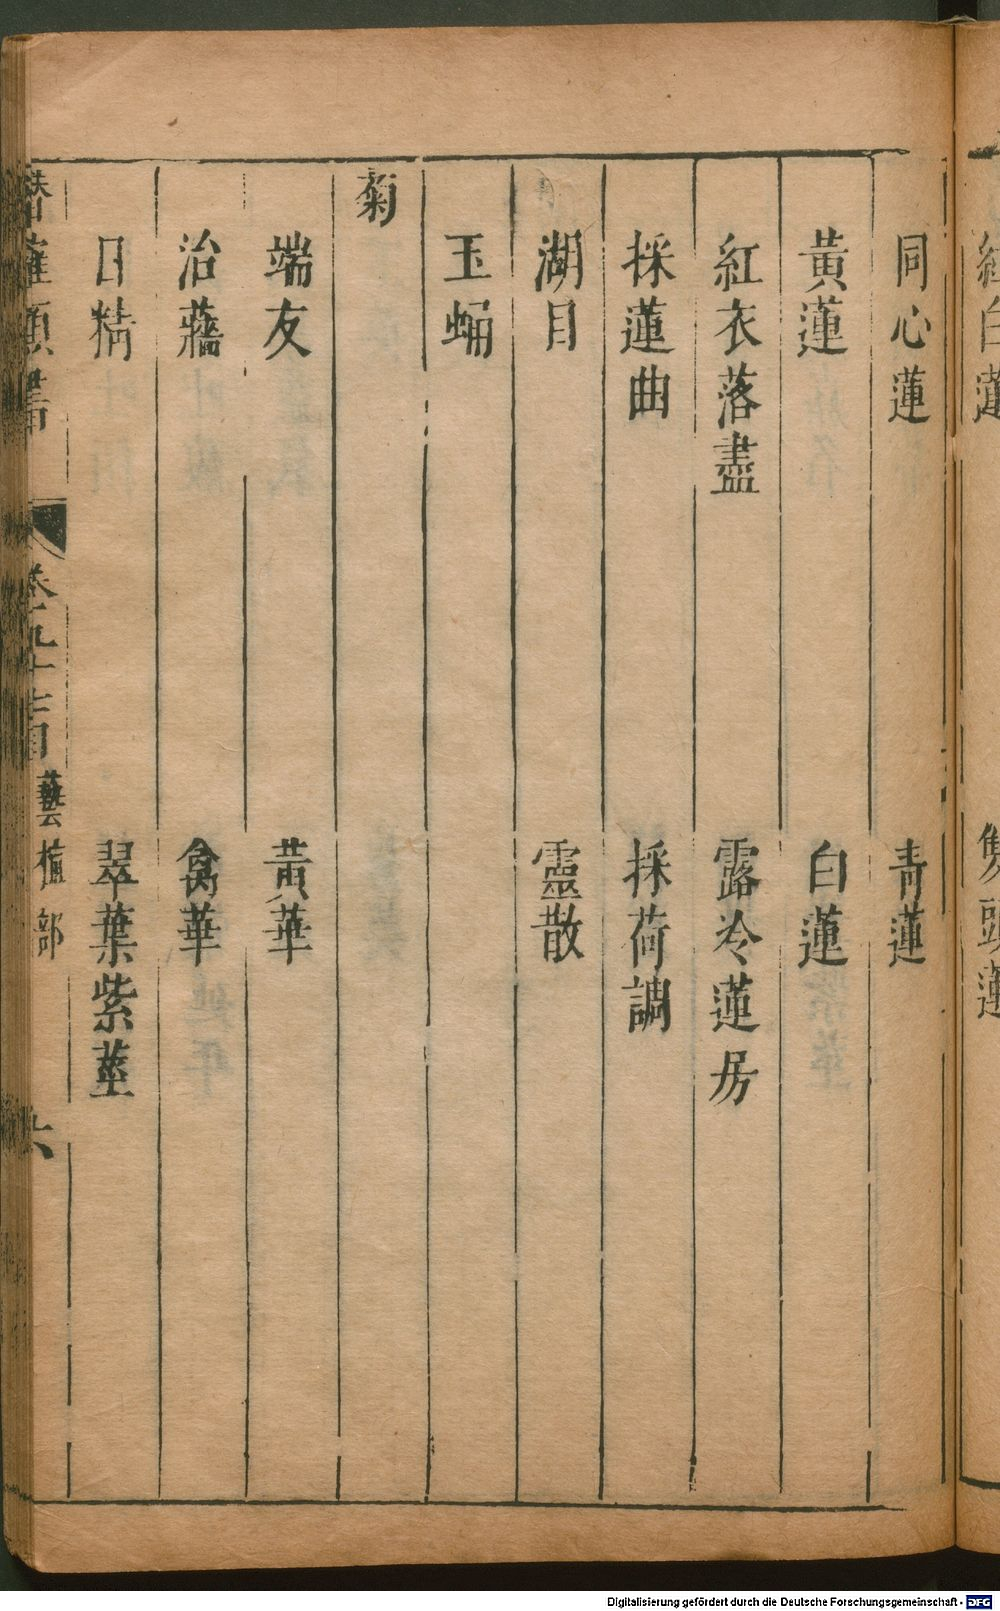 紅白蓮 雙頭蓮
同心蓮 青蓮
黃蓮 白蓮
紅衣落盡 露冷蓮房
採蓮曲 採荷調
湖目 靈散
玉蛹
菊
端友 黃華
治蘠 禽華
日精 翠葉紫莖
潛確類書 卷九十七目 藝植部 六
Digitalisierung gefördert durch die Deutsche Forschungsgemeinschaft - DFG